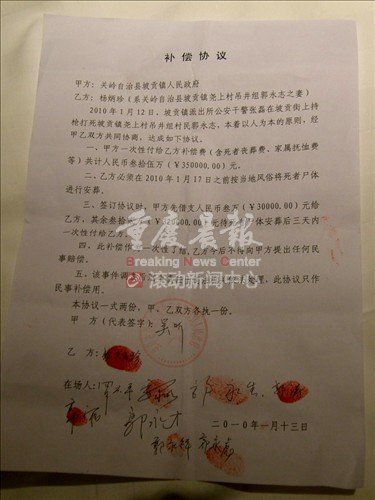 补 偿 协 议
甲方：关岭自治县坡贡镇人民政府
乙方：杨炳珍（系关岭自治县坡贡镇尧上村吊井组郭永志之妻）
2010 年 1 月 12 日，坡贡镇派出所公安干警张磊在坡贡街上持
枪打死坡贡镇尧上村吊井组村民郭永志，本着以人为本的原则，经
甲乙双方共同协商，达成如下协议。
一、甲方一次性付给乙方补偿费（含死者丧葬费、家属抚恤费
等）共计人民币叁拾伍万（￥350000.00）元。
二、乙方必须在 2010 年 1 月 17 日之前按当地风俗将死者尸体
进行安葬。
三、签订协议时，甲方先借支人民币叁万（￥30000.00）元给
乙方，其余叁拾 万（￥320000.00）元待 尸体安葬后三天内
一次性付给乙方
四、此补偿 一次性了结，乙方今后不得向甲方提出任何民
事赔偿。
五、该事件 处理，此协议只作
民事补偿用。
本协议一式两份，甲、乙双方各执一份。
甲 方（代表签字）：
乙 方：
在场人：
二○一○年一月十三日
重庆晨报
Breaking News Center
滚动新闻中心